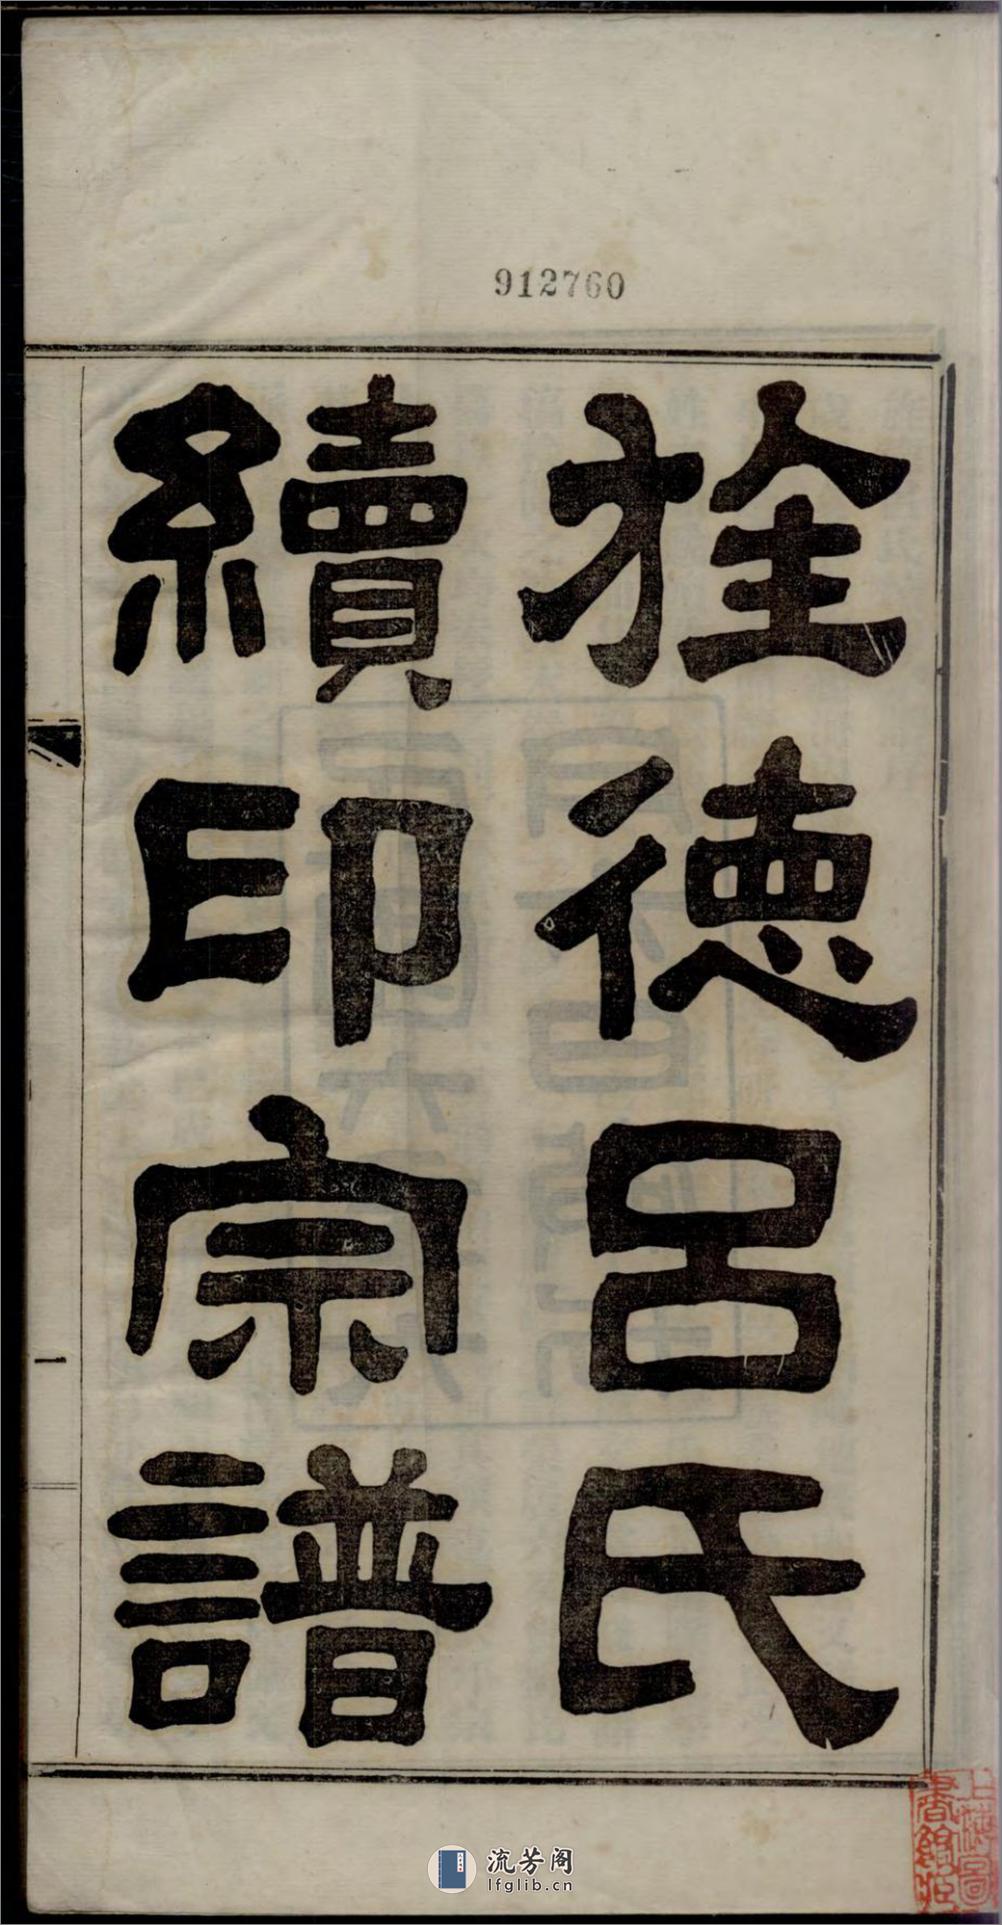 912760
旌徳呂氏
續印宗譜
一
上海圖
書館藏
流芳阁
lfglib.cn